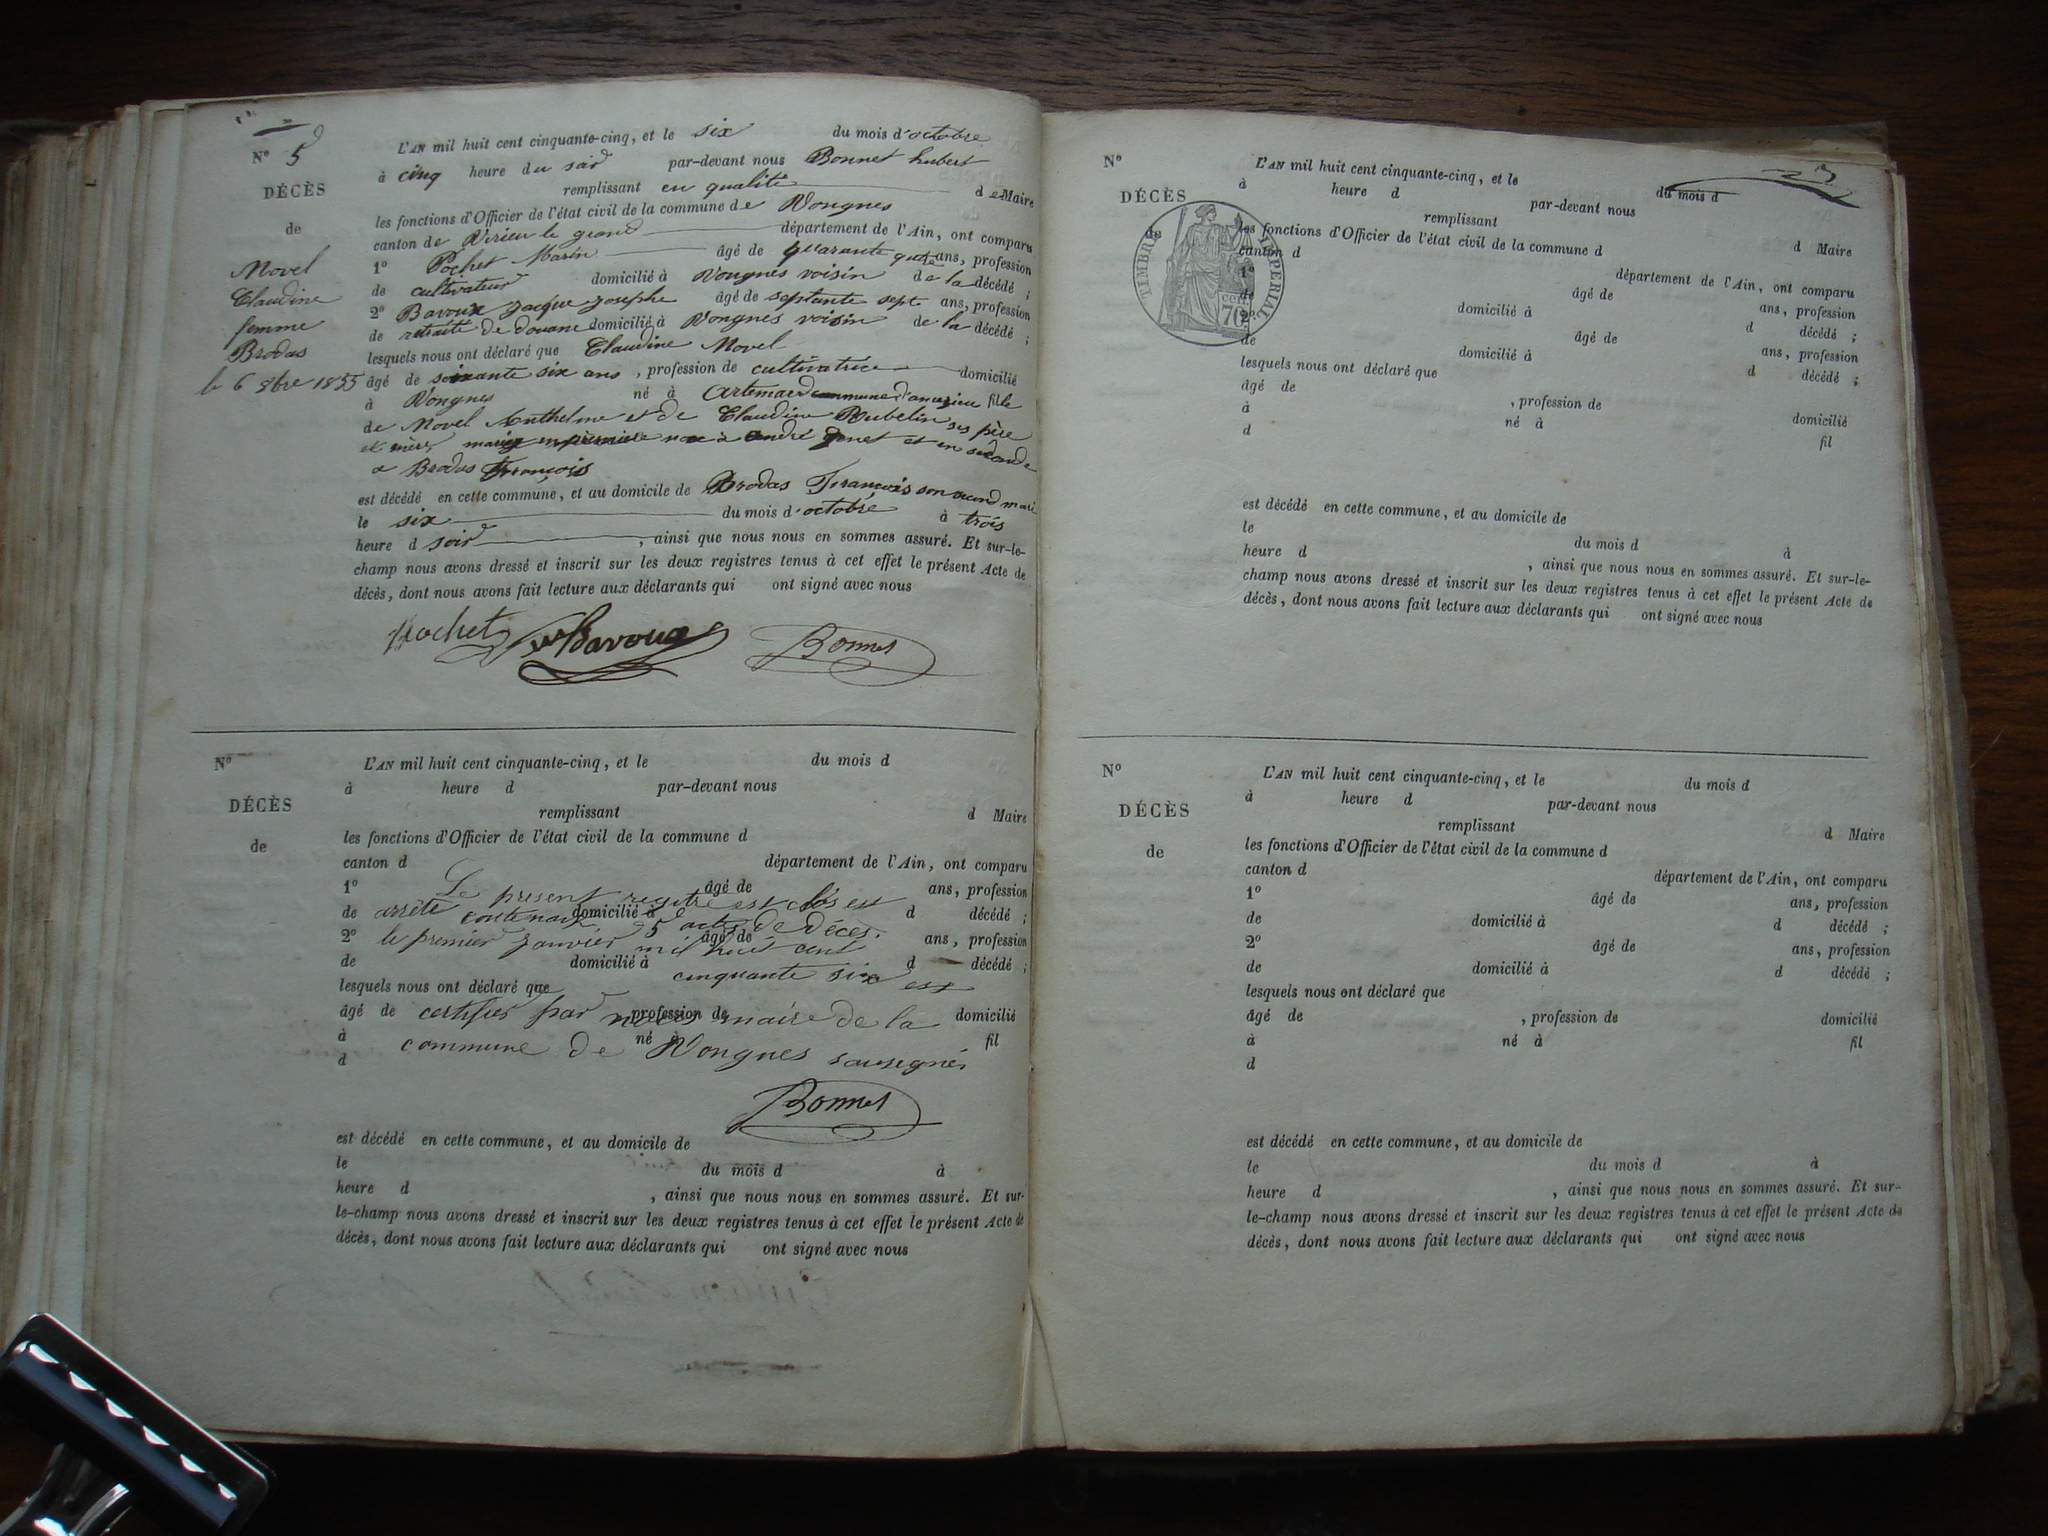 N° 5
DÉCÈS
de
Movel
Claudine
femme
Brodas
le 6 8bre 1855
L'AN mil huit cent cinquante-cinq, et le six du mois d'octobre
à cinq heure du soir par-devant nous Bonnet hubert
remplissant en qualité de Maire
les fonctions d'Officier de l'état civil de la commune de Vongnes
canton de Virieu le grand département de l'Ain, ont comparu
1° Pochet Marin âgé de quarante ans, profession
de cultivateur domicilié à Vongnes voisin de la décédé ;
2° Bavoux Jacque Josephe âgé de septante sept ans, profession
de retraité de douane domicilié à Vongnes voisin de la décédé ;
lesquels nous ont déclaré que Claudine Movel
âgé de soixante six ans, profession de cultivatrice domicilié
à Vongnes né à Artemard commune fille
de Movel Anthelme et de Claudine Rubelin ses père
et mère, mariée en première à andré et en seconde
a Brodas François
est décédé en cette commune, et au domicile de Brodas François son second mari
le six du mois d'octobre à trois
heure d soir, ainsi que nous nous en sommes assuré. Et sur-le-
champ nous avons dressé et inscrit sur les deux registres tenus à cet effet le présent Acte de
décès, dont nous avons fait lecture aux déclarants qui ont signé avec nous
Pochet Bavoux Bonnet
N°
DÉCÈS
de
L'AN mil huit cent cinquante-cinq, et le du mois d
à heure d par-devant nous
remplissant d Maire
les fonctions d'Officier de l'état civil de la commune d
canton d département de l'Ain, ont comparu
1° âgé de ans, profession
Le present registre est clos et
de domicilié à d décédé ;
arrêté contenant 5 actes de décès.
2° âgé de ans, profession
le premier janvier mil huit cent
de domicilié à d décédé ;
cinquante six est
lesquels nous ont déclaré que
âgé de , profession de domicilié
certifier par nous maire de la
à né à fil
commune de Vongnes soussigné
d
Bonnet
est décédé en cette commune, et au domicile de
le du mois d à
heure d , ainsi que nous nous en sommes assuré. Et sur-
le-champ nous avons dressé et inscrit sur les deux registres tenus à cet effet le présent Acte de
décès, dont nous avons fait lecture aux déclarants qui ont signé avec nous
3
N°
DÉCÈS
de
TIMBRE IMPERIAL
cen. 70
L'AN mil huit cent cinquante-cinq, et le du mois d
à heure d par-devant nous
remplissant d Maire
les fonctions d'Officier de l'état civil de la commune d
canton d département de l'Ain, ont comparu
1° âgé de ans, profession
de domicilié à d décédé ;
2° âgé de ans, profession
de domicilié à d décédé ;
lesquels nous ont déclaré que
âgé de , profession de domicilié
à né à fil
d
est décédé en cette commune, et au domicile de
le du mois d à
heure d , ainsi que nous nous en sommes assuré. Et sur-le-
champ nous avons dressé et inscrit sur les deux registres tenus à cet effet le présent Acte de
décès, dont nous avons fait lecture aux déclarants qui ont signé avec nous
N°
DÉCÈS
de
L'AN mil huit cent cinquante-cinq, et le du mois d
à heure d par-devant nous
remplissant d Maire
les fonctions d'Officier de l'état civil de la commune d
canton d département de l'Ain, ont comparu
1° âgé de ans, profession
de domicilié à d décédé ;
2° âgé de ans, profession
de domicilié à d décédé ;
lesquels nous ont déclaré que
âgé de , profession de domicilié
à né à fil
d
est décédé en cette commune, et au domicile de
le du mois d à
heure d , ainsi que nous nous en sommes assuré. Et sur-
le-champ nous avons dressé et inscrit sur les deux registres tenus à cet effet le présent Acte de
décès, dont nous avons fait lecture aux déclarants qui ont signé avec nous